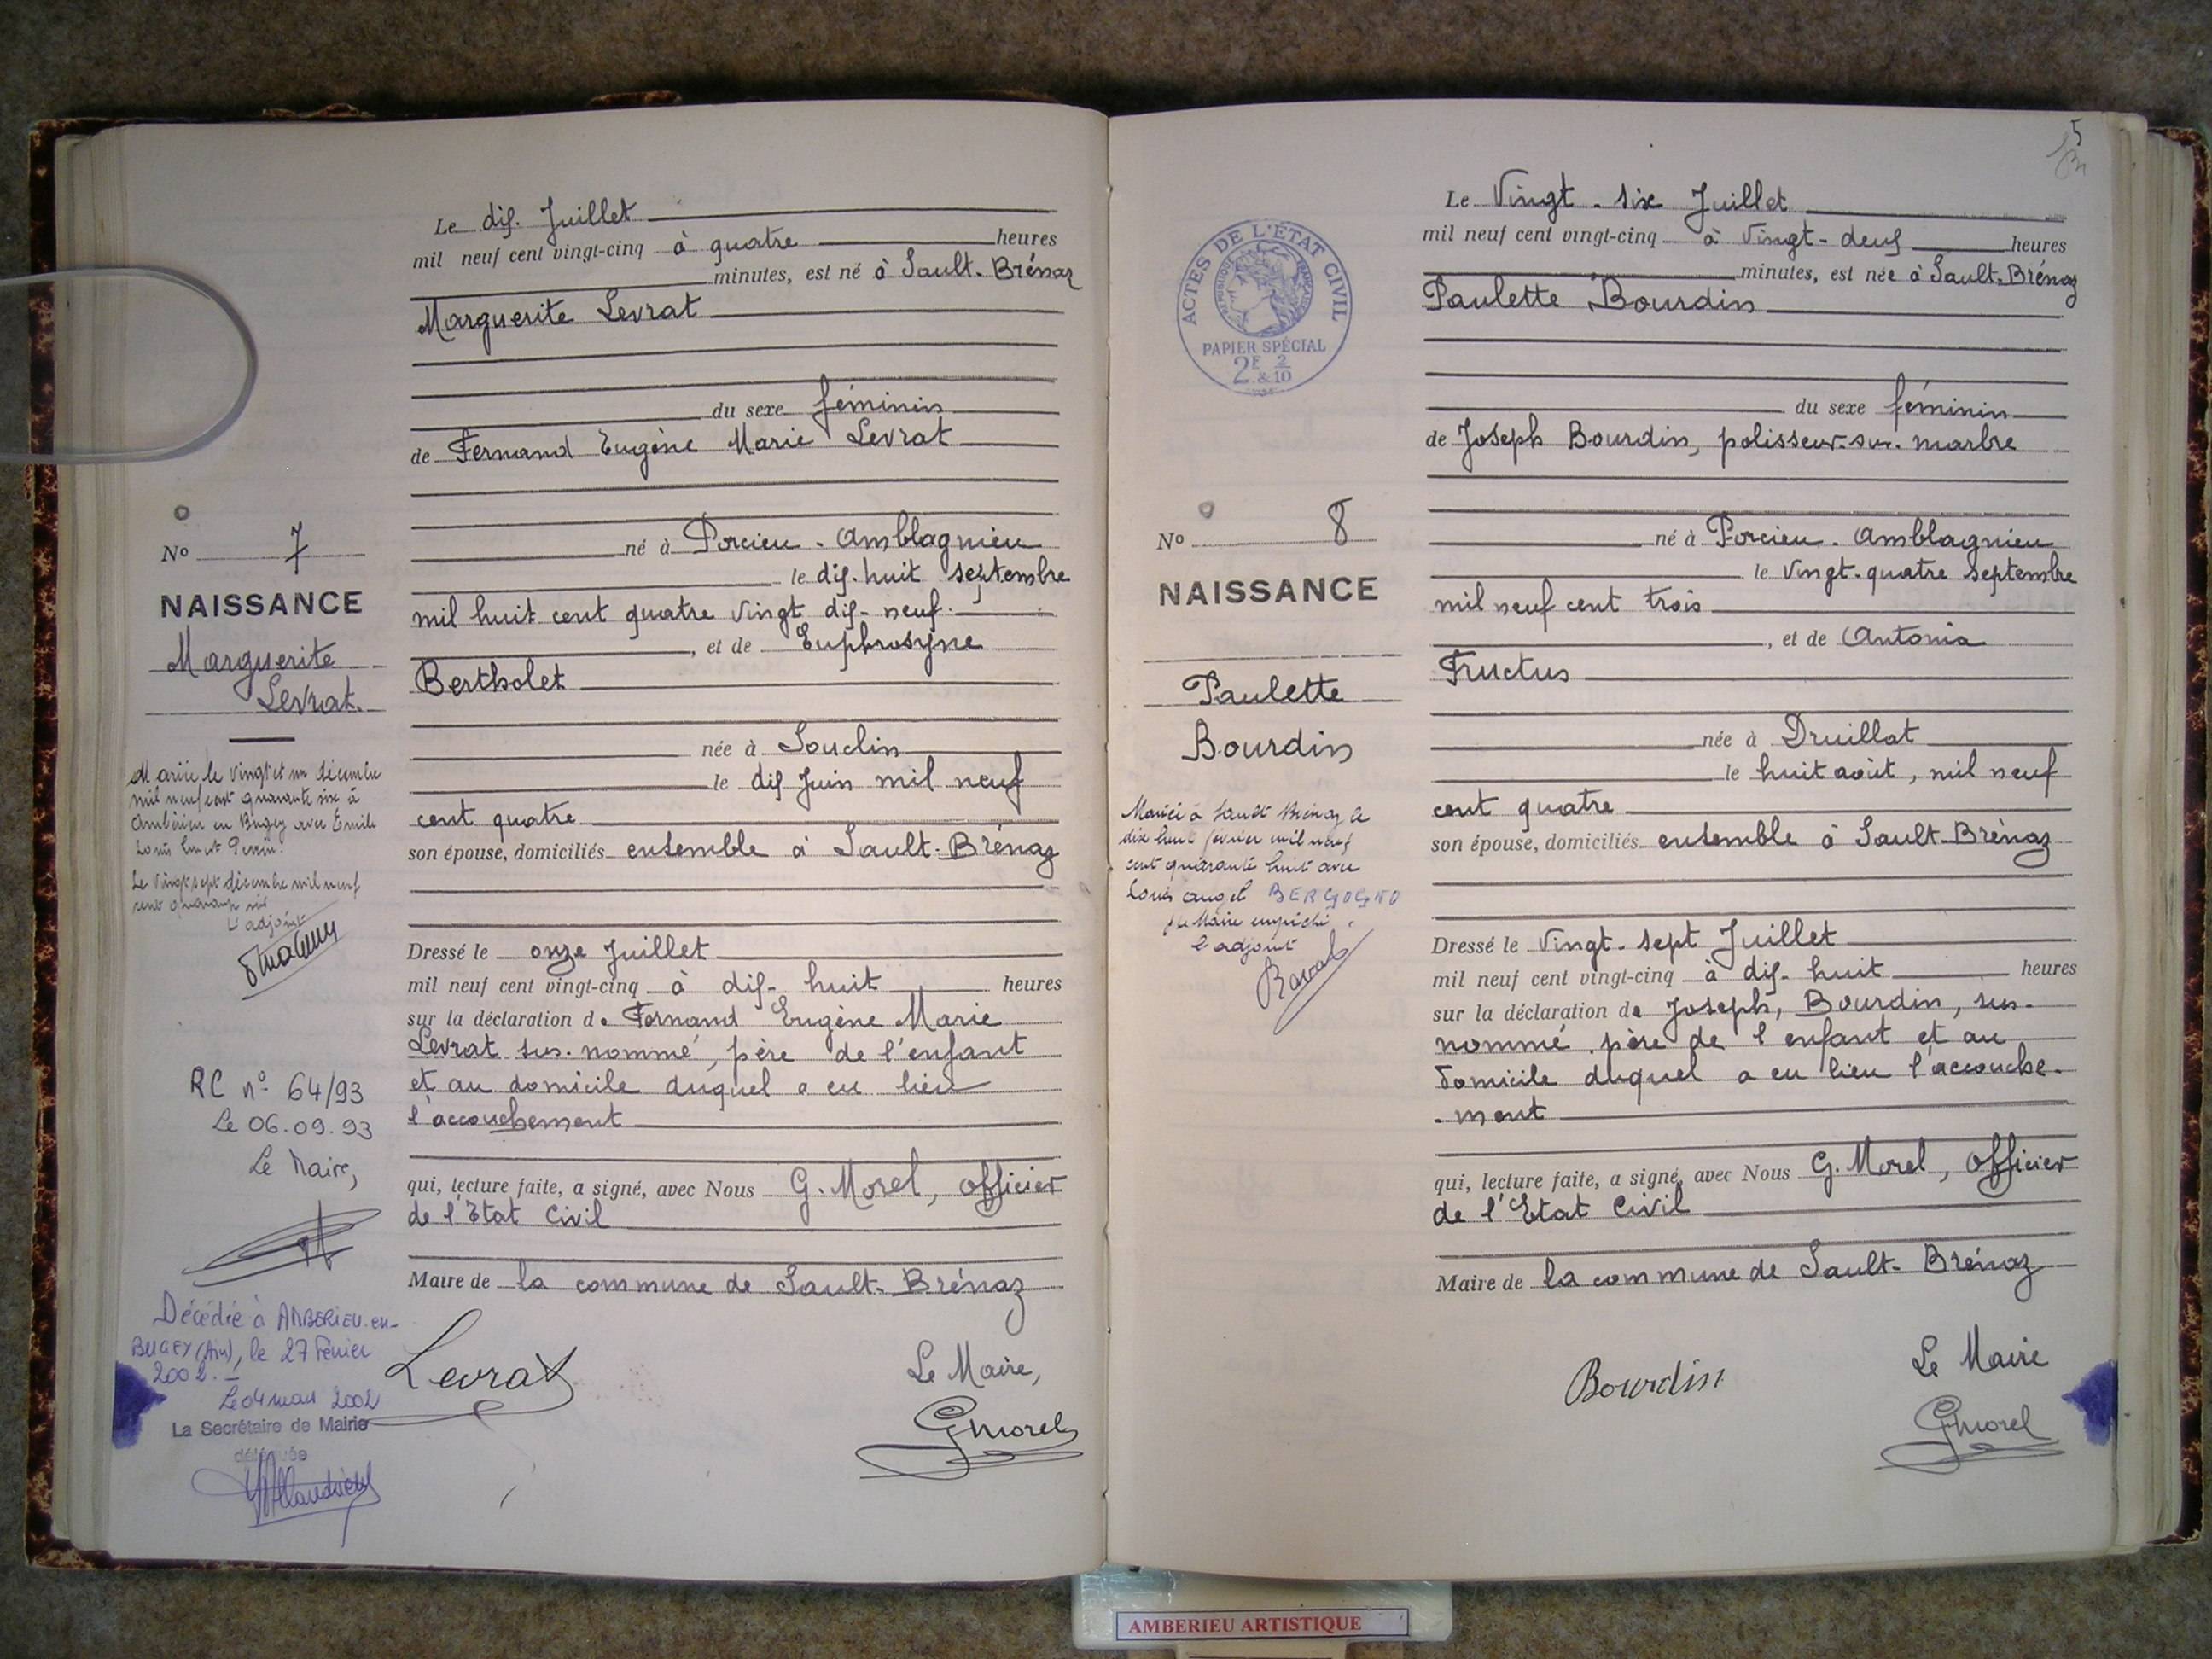 Le dix Juillet
mil neuf cent vingt-cinq à quatre heures
minutes, est né à Sault-Brénaz
Marguerite Levrat
du sexe féminin
de Fernand Eugène Marie Levrat
né à Porcieu-Amblagnieu
le dix-huit septembre
mil huit cent quatre vingt dix-neuf
, et de Euphrosyne
Bertholet
née à Souclin
le dix Juin mil neuf
cent quatre
son épouse, domiciliés ensemble à Sault-Brénaz
Dressé le onze Juillet
mil neuf cent vingt-cinq à dix-huit heures
sur la déclaration de Fernand Eugène Marie
Levrat sus-nommé, père de l'enfant
et au domicile duquel a eu lieu
l'accouchement
qui, lecture faite, a signé, avec Nous G. Morel, officier
de l'Etat Civil
Maire de la commune de Sault-Brénaz
Levrat
Le Maire,
GMorel
No 7
NAISSANCE
Marguerite
Levrat.
Mariée le vingt et un décembre
mil neuf cent quarante six à
Ambérieu en Bugey avec Emile
Louis
Le vingt sept décembre mil neuf
cent quarante six
L'adjoint
RC n° 64/93
Le 06.09.93
Le Maire,
Décédée à AMBERIEU-en-
BUGEY (Ain), le 27 Février
2002.-
Le 04 mars 2002
La Secrétaire de Mairie
déléguée
5
Le Vingt-six Juillet
mil neuf cent vingt-cinq à Vingt-deux heures
minutes, est née à Sault-Brénaz
Paulette Bourdin
du sexe féminin
de Joseph Bourdin, polisseur-sur-marbre
né à Porcieu-Amblagnieu
le Vingt-quatre septembre
mil neuf cent trois
, et de Antonia
Fructus
née à Druillat
le huit août, mil neuf
cent quatre
son épouse, domiciliés ensemble à Sault-Brénaz
Dressé le Vingt-sept Juillet
mil neuf cent vingt-cinq à dix-huit heures
sur la déclaration de Joseph, Bourdin, sus-
nommé, père de l'enfant et au
domicile duquel a eu lieu l'accouche-
-ment
qui, lecture faite, a signé, avec Nous G. Morel, officier
de l'Etat Civil
Maire de la commune de Sault-Brénaz
Bourdin
Le Maire
GMorel
ACTES DE L'ÉTAT CIVIL
RÉPUBLIQUE FRANÇAISE
PAPIER SPÉCIAL
2F 2
& 10
No 8
NAISSANCE
Paulette
Bourdin
Mariée à Sault Brénaz le
dix huit février mil neuf
cent quarante huit avec
Louis Angel BERGOGNO
Le Maire empêché
l'adjoint
AMBERIEU ARTISTIQUE